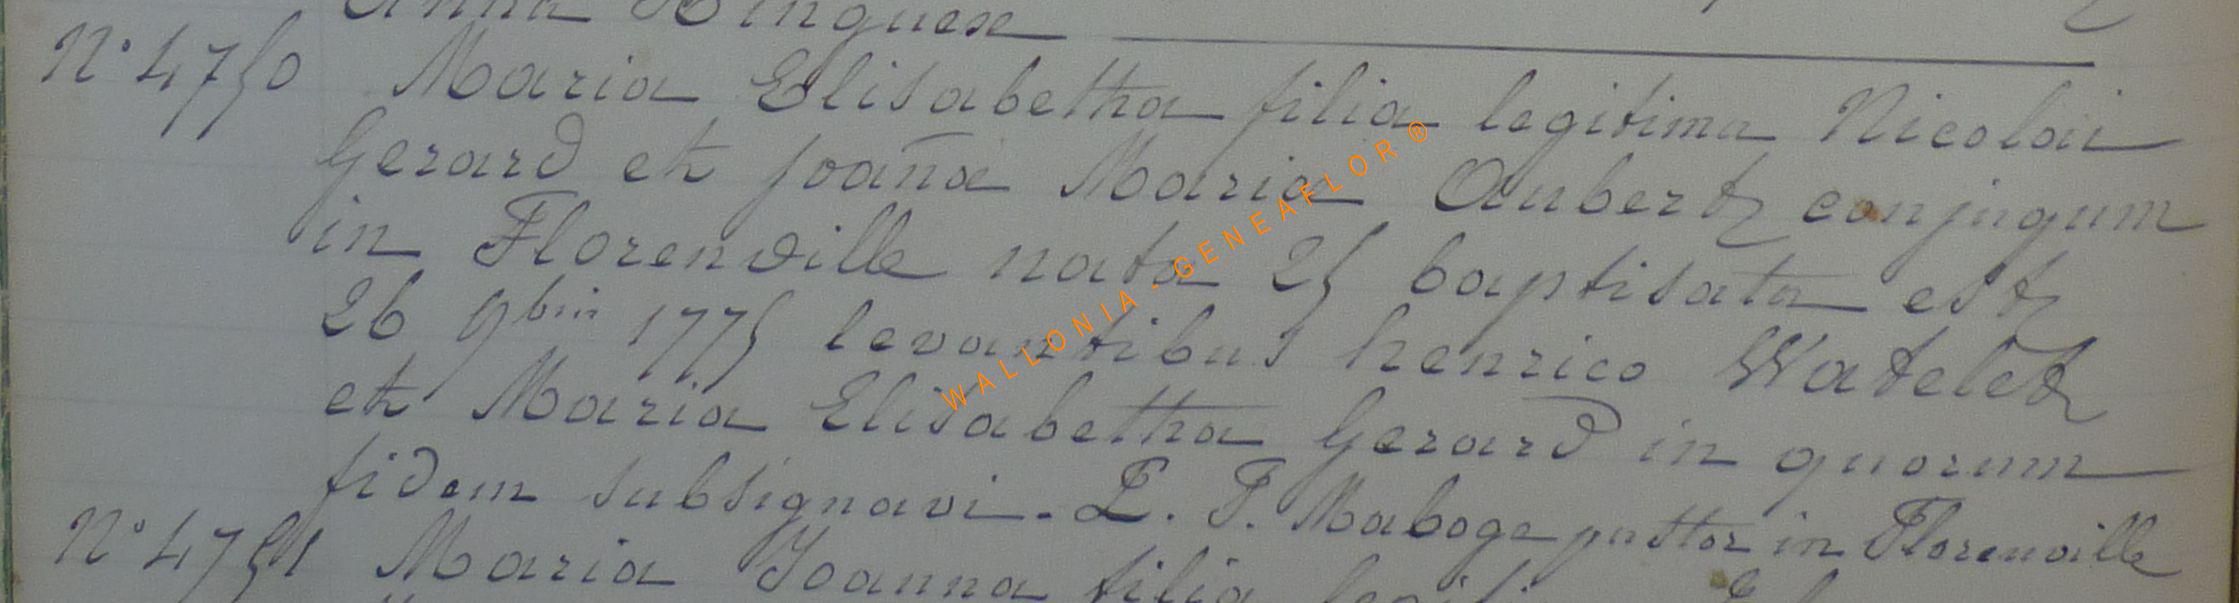 Anna Hinguex
N° 4750 Maria Elisabetha filia legitima Nicolai
Gerard et joaña Maria Aubert conjugum
in Florenville nata 25 baptisata est
26 9bris 1775 levantibus henrico Watelet
et Maria Elisabetha Gerard in quorum
fidem subsignavi. L. J. Maboge pastor in Florenville
N° 4751 Maria Joanna filia
WALLONIA - GENEAFLOR®